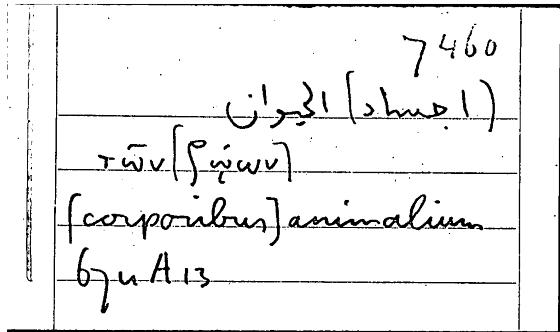 7460
(اجساد) الحيوان
τῶν [ζῴων]
[corporibus] animalium
674 A 13